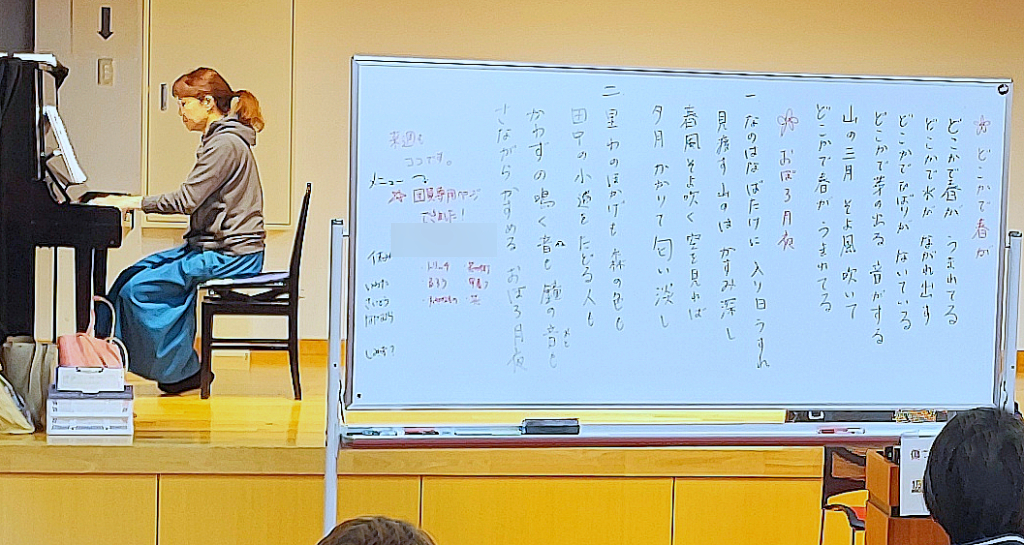 どこかで春が
どこかで春が うまれてる
どこかで水が ながれ出す
どこかでひばりが ないている
どこかで芽の出る 音がする
山の三月 そよ風 吹いて
どこかで春が うまれてる
おぼろ月夜
一 なのはなばたけに 入り日うすれ
見渡す山のは かすみ深し
春風そよ吹く 空を見れば
夕月 かかりて 匂い淡し
二 里わのほかげも 森の色も
田中の小道をたどる人も
かわずの鳴く音も 鐘の音も
さながら かすめる おぼろ月夜
来週も
ココです。
メニュー
会員専用ページ
できました!